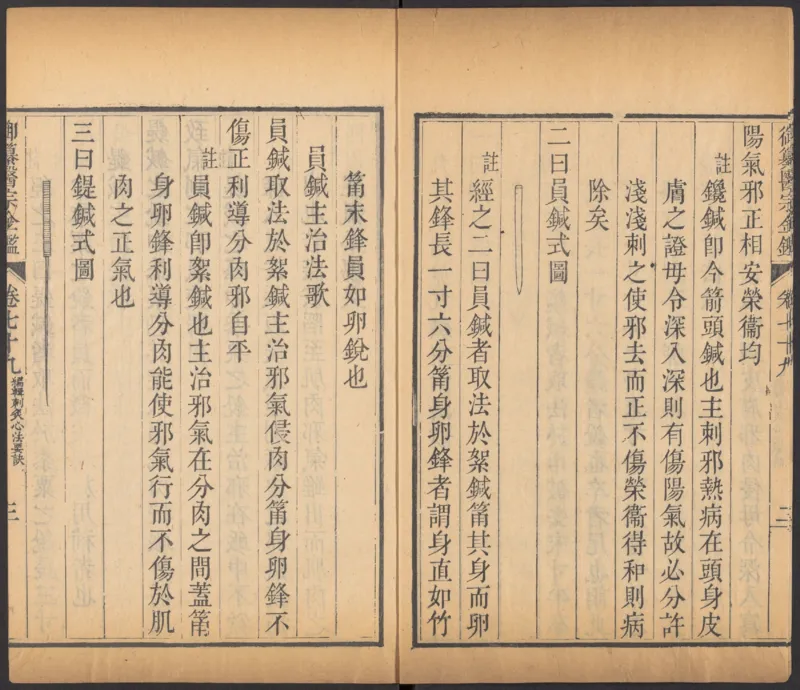 御纂醫宗金鑑 卷七十九 二
陽氣邪正相安榮衞均
註
鑱鍼卽今箭頭鍼也主刺邪熱病在頭身皮
膚之證毋令深入深則有傷陽氣故必分許
淺淺刺之使邪去而正不傷榮衞得和則病
除矣
二曰員鍼式圖
註
經之二曰員鍼者取法於絮鍼筩其身而卵
其鋒長一寸六分筩身卵鋒者謂身直如竹
筩末鋒員如卵銳也
員鍼主治法歌
員鍼取法於絮鍼主治邪氣侵肉分筩身卵鋒不
傷正利導分肉邪自平
註
員鍼卽絮鍼也主治邪氣在分肉之間蓋筩
身卵鋒利導分肉能使邪氣行而不傷於肌
肉之正氣也
三曰鍉鍼式圖
御纂醫宗金鑑 卷七十九 編輯刺灸心法要訣 三